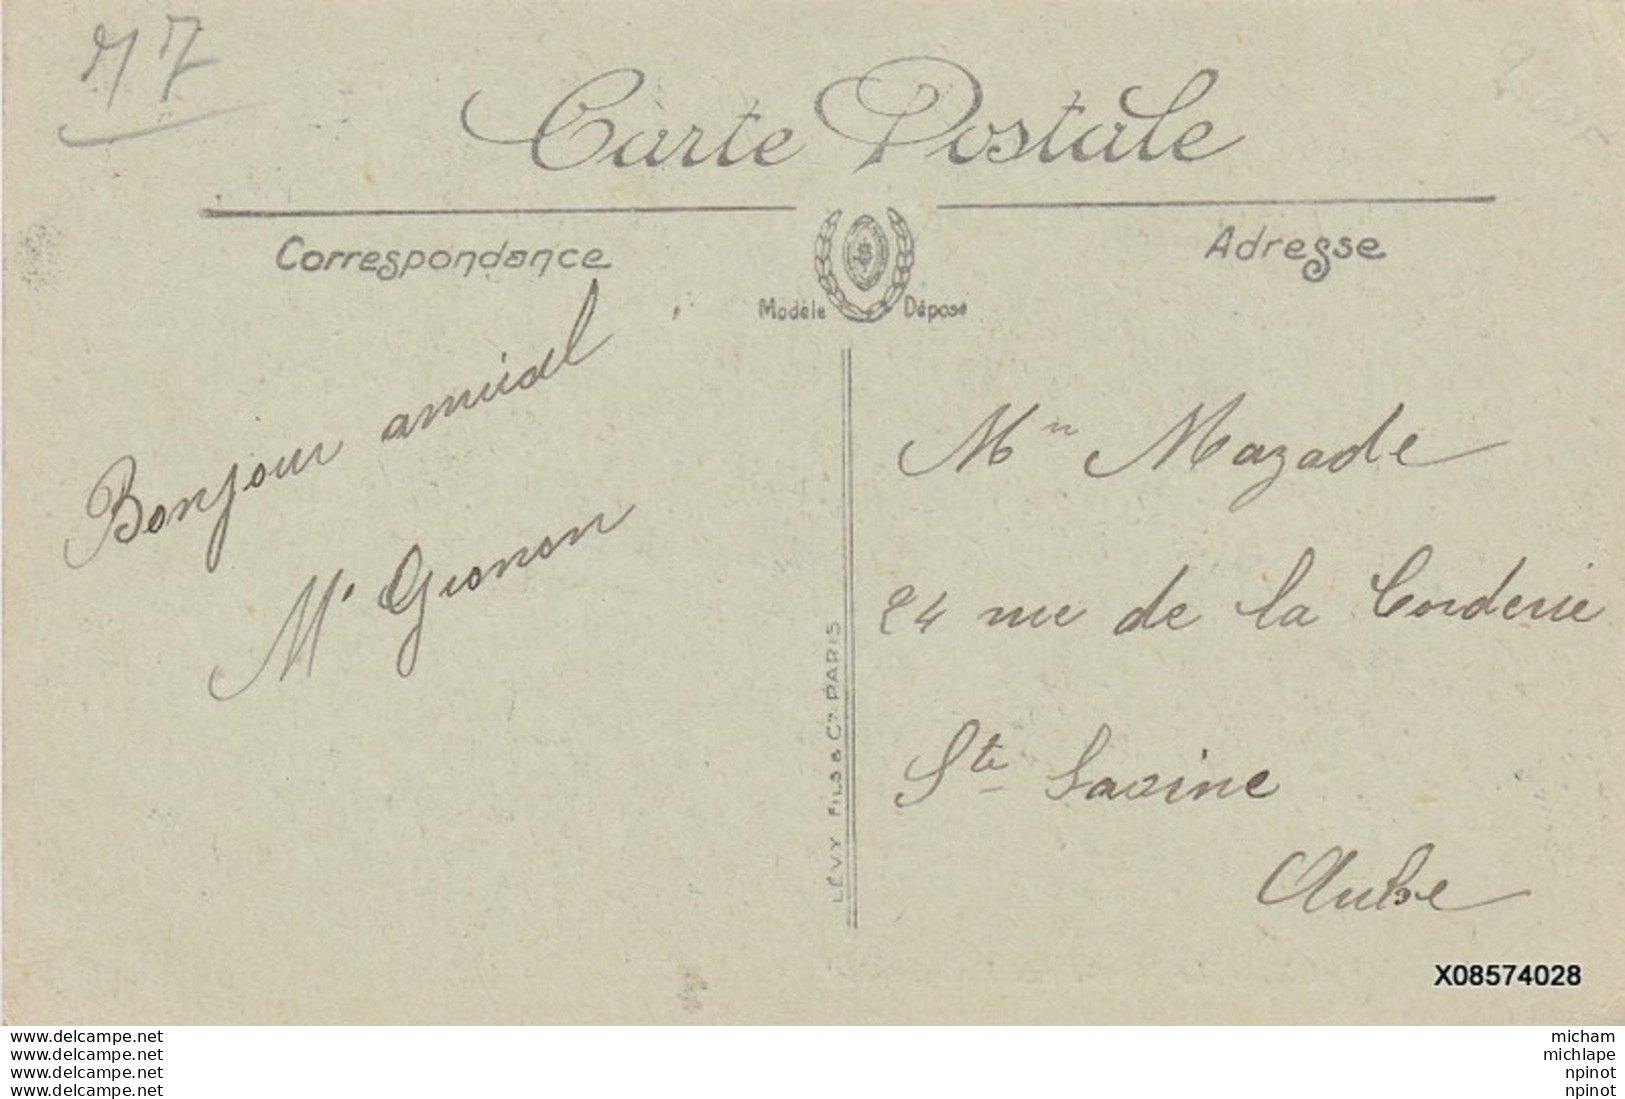 77
Carte Postale
Correspondance
Adresse
Modèle Déposé
Bonjour amical
LÉVY FILS & Cie PARIS
Mme Mazade
24 rue de la Corderie
Ste Savine
Aube
X08574028
www.delcampe.net
www.delcampe.net
www.delcampe.net
www.delcampe.net
micham
michlape
npinot
npinot